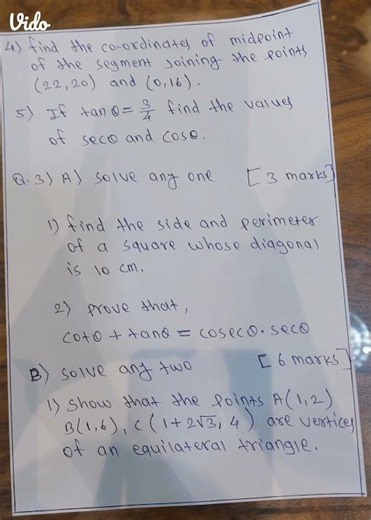 Vido
4) find the co-ordinates of midpoint
of the segment joining the points
(22,20) and (0,16).
5) If tanθ = 3/4 find the values
of secθ and cosθ.
Q.3) A) solve any one [3 marks]
1) find the side and perimeter
of a square whose diagonal
is 10 cm.
2) prove that,
cotθ + tanθ = cosecθ·secθ
B) solve any two [6 marks]
1) show that the points A(1,2)
B(1,6), C(1+2√3, 4) are vertices
of an equilateral triangle.